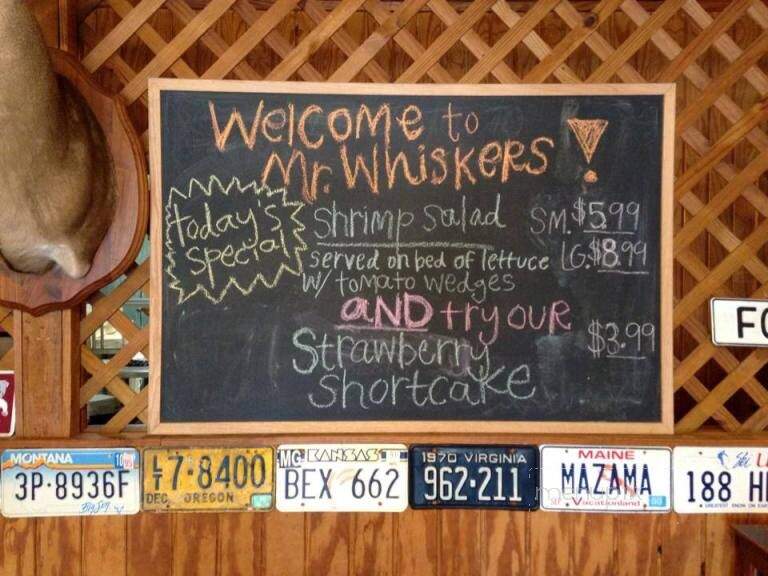 Welcome to
Mr. Whiskers!
Today's
Special
Shrimp Salad SM. $5.99
served on bed of lettuce LG. $8.99
w/ tomato wedges
AND try our
Strawberry $3.99
Shortcake
MONTANA
3P·8936F
Big Sky
17·8400
DEC OREGON
MG KANSAS
BEX 662
1970 VIRGINIA
962·211
MAINE
MAZAMA
Vacationland
Ski U
188 H
GREATEST SNOW ON EARTH
FO